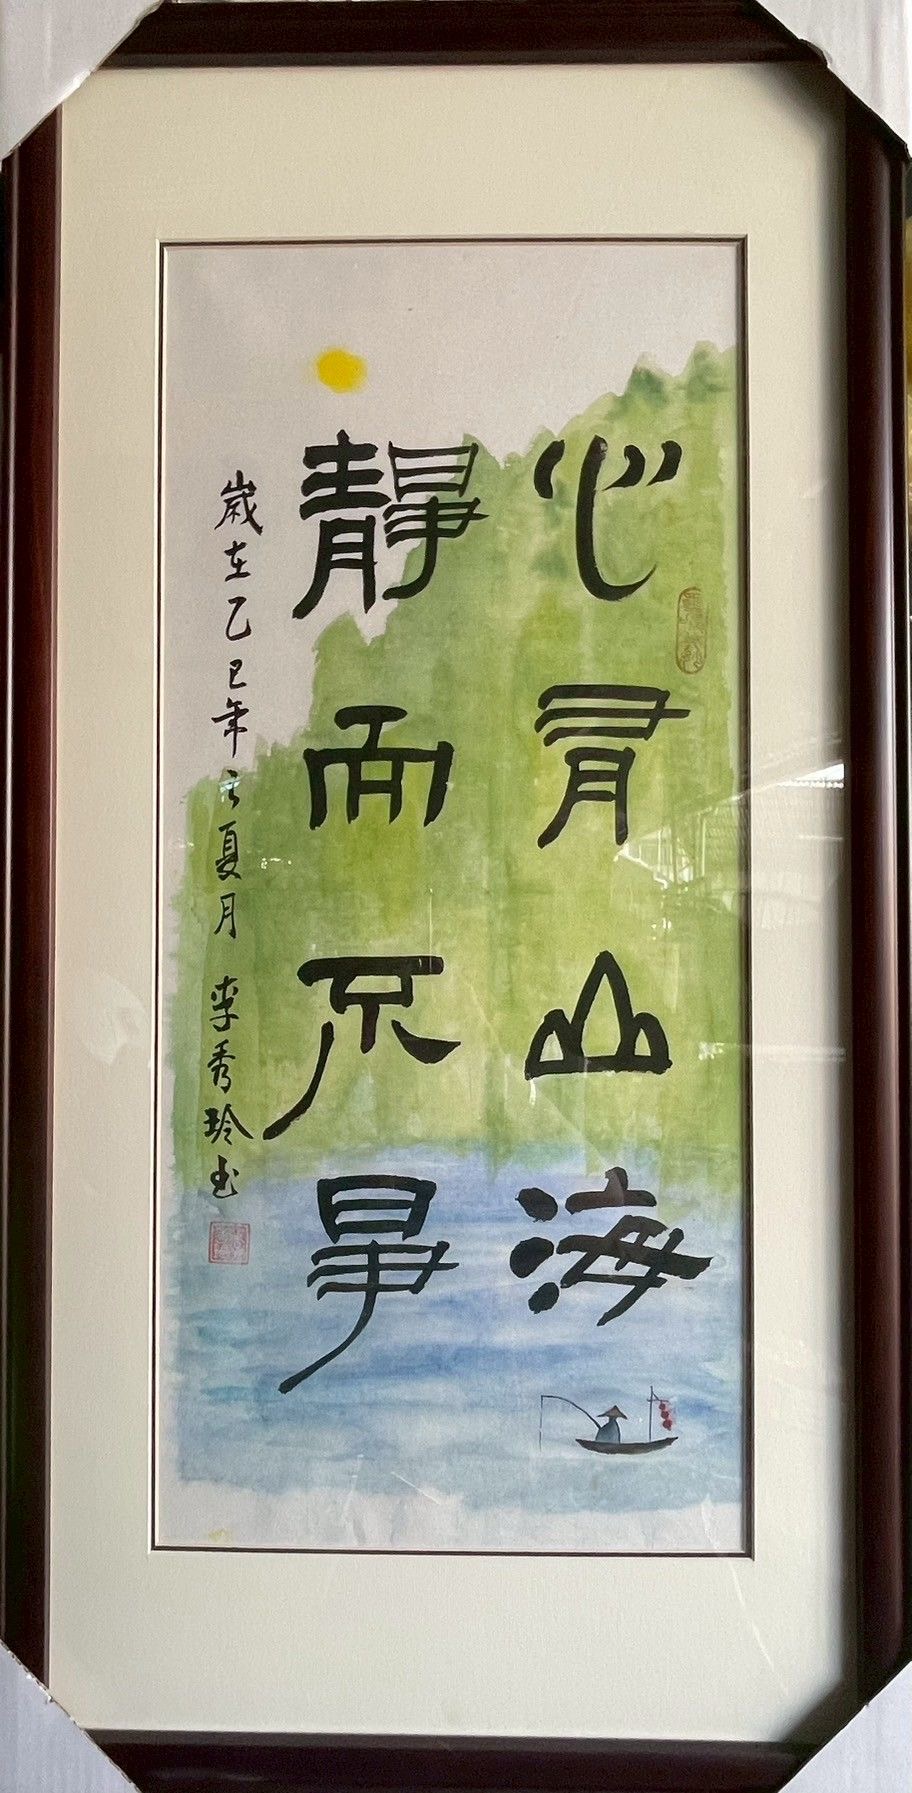 心有山海
靜而不爭
歲在乙巳年之夏月 李秀玲书